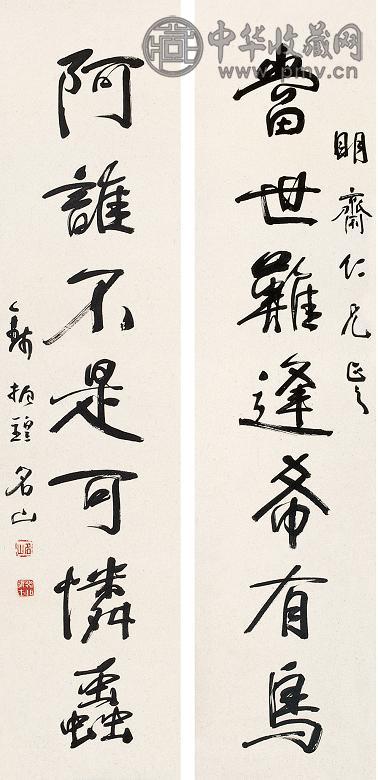 中华收藏网
www.pmv.cn
明齋仁兄正之
當世難逢希有鳥
阿誰不是可憐蟲
錢振鍠名山